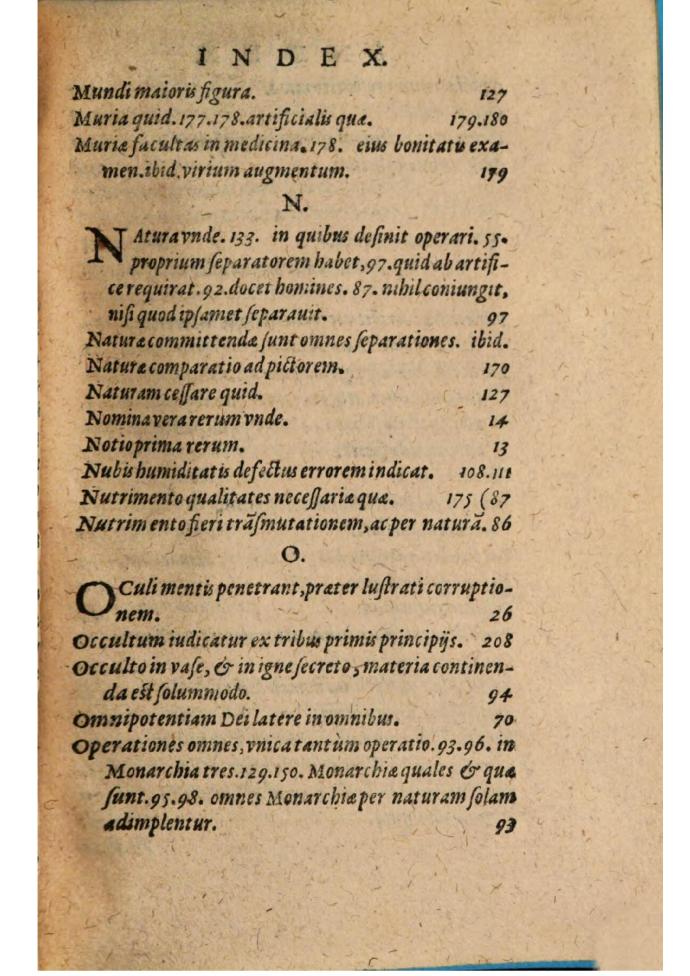 INDEX.
Mundi maioris figura. 127
Muria quid. 177.178. artificialis quæ. 179.180
Muriæ facultas in medicina. 178. eius bonitatis exa-
men. ibid. virium augmentum. 179
N.
NAtura vnde. 133. in quibus definit operari. 55.
proprium ſeparatorem habet, 97. quid ab artifi-
ce requirat. 92. docet homines. 87. nihil coniungit,
niſi quod ipſamet ſeparauit. 97
Naturæ committendæ ſunt omnes ſeparationes. ibid.
Naturæ comparatio ad pictorem. 170
Naturam ceſſare quid. 127
Nomina vera rerum vnde. 14
Notio prima rerum. 13
Nubis humiditatis defectus errorem indicat. 108.111
Nutrimento qualitates neceſſariæ quæ. 175 (87
Nutrimento fieri trãſmutationem, ac per naturã. 86
O.
OCuli mentis penetrant, præter luſtrati corruptio-
nem. 26
Occultum iudicatur ex tribus primis principijs. 208
Occulto in vaſe, & in igne ſecreto, materia continen-
da eſt ſolummodo. 94
Omnipotentiam Dei latere in omnibus. 70
Operationes omnes, vnica tantùm operatio. 93.96. in
Monarchia tres. 129.150. Monarchiæ quales & quæ
ſunt. 95.98. omnes Monarchiæ per naturam ſolam
adimplentur. 93